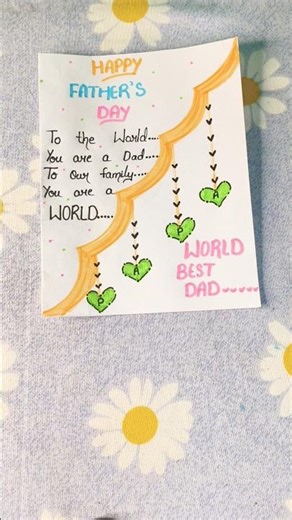 HAPPY
FATHER'S
DAY
To the World....
You are a Dad....
To Our family....
You are a
WORLD.....
P
A
P
A
WORLD
BEST
DAD